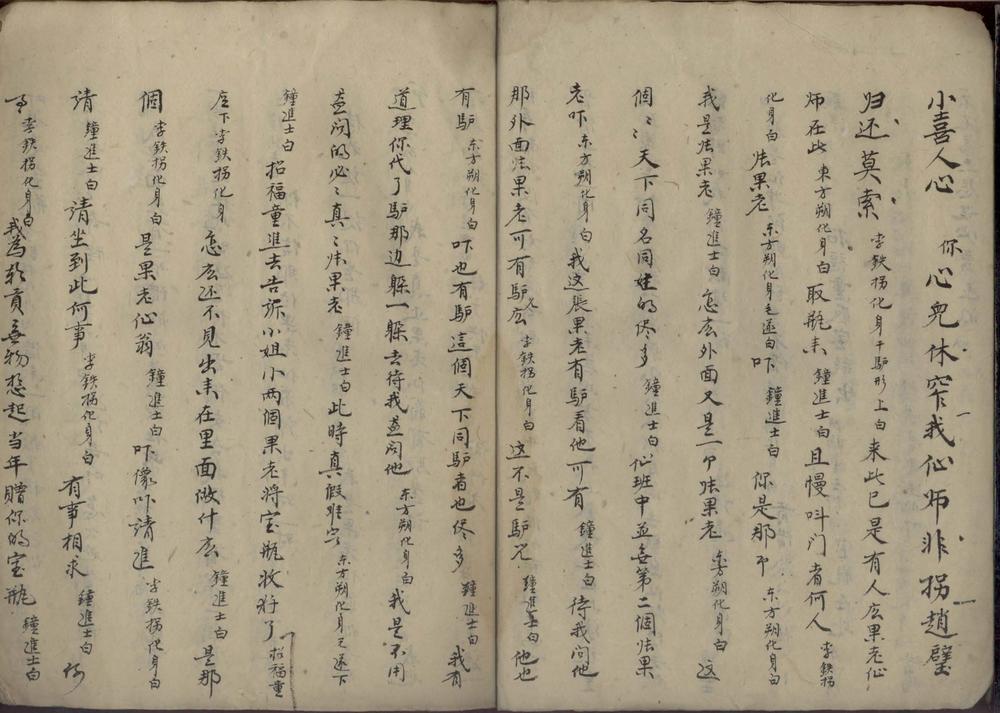 小喜人心 你心兜休窄我仙师非拐趙璧
归还莫索 李鉄拐化身干驴形上白 来此已是有人庅果老仙
师在此 東方朔化身白 取瓶来 鐘進士白 且慢叫门者何人 李鉄拐
化身白 㳒果老 东方朔化身毛遂白 吓 鐘進士白 你是那 东方朔化身白
我是㳒果老 鐘進士白 怎庅外面又是一个㳒果老 东方朔化身白 这
個〻天下同名同姓的侭多 鐘進士白 仙班中並无第二個㳒果
老吓 东方朔化身白 我这張果老有驴看他可有 鐘進士白 待我问他
那外面㳒果老可有驴儿庅 李鉄拐化身白 这不是驴儿 鐘進士白 他也
有驴 东方朔化身白 吓也有驴這個天下同驴者也侭多 鐘進士白 我有
道理你代了驴那边躲一躲去待我盖问他 东方朔化身白 我是不用
盖问的必〻真〻㳒果老 鐘進士白 此時真假难 东方朔化身毛遂下
鐘進士白 招福童進去告訴小姐小两個果老将宝瓶收好了 招福童
应下李鉄拐化身 怎庅还不見出来在里面做什庅 鐘進士白 是那
個 李鉄拐化身白 是果老仙翁 鐘進士白 吓像吓請進 李鉄拐化身白
請 鐘進士白 請坐到此何事 李鉄拐化身白 有事相求 鐘進士白 何
事 李鉄拐化身白 我為朝貢无物想起当年贈你的宝瓶 鐘進士白